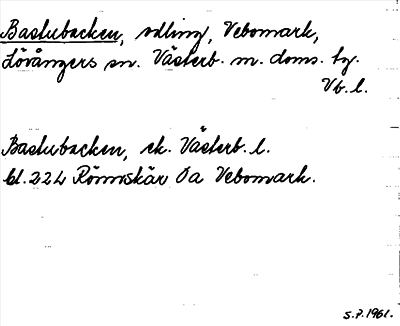 Bastubacken, odling, Vebomark,
Lövångers sn. Västerb. m. doms. tg.
Vb. l.
Bastubacken, ek. Västerb. l.
bl. 224 Rönnskär Öa Vebomark.
S.7.1961.